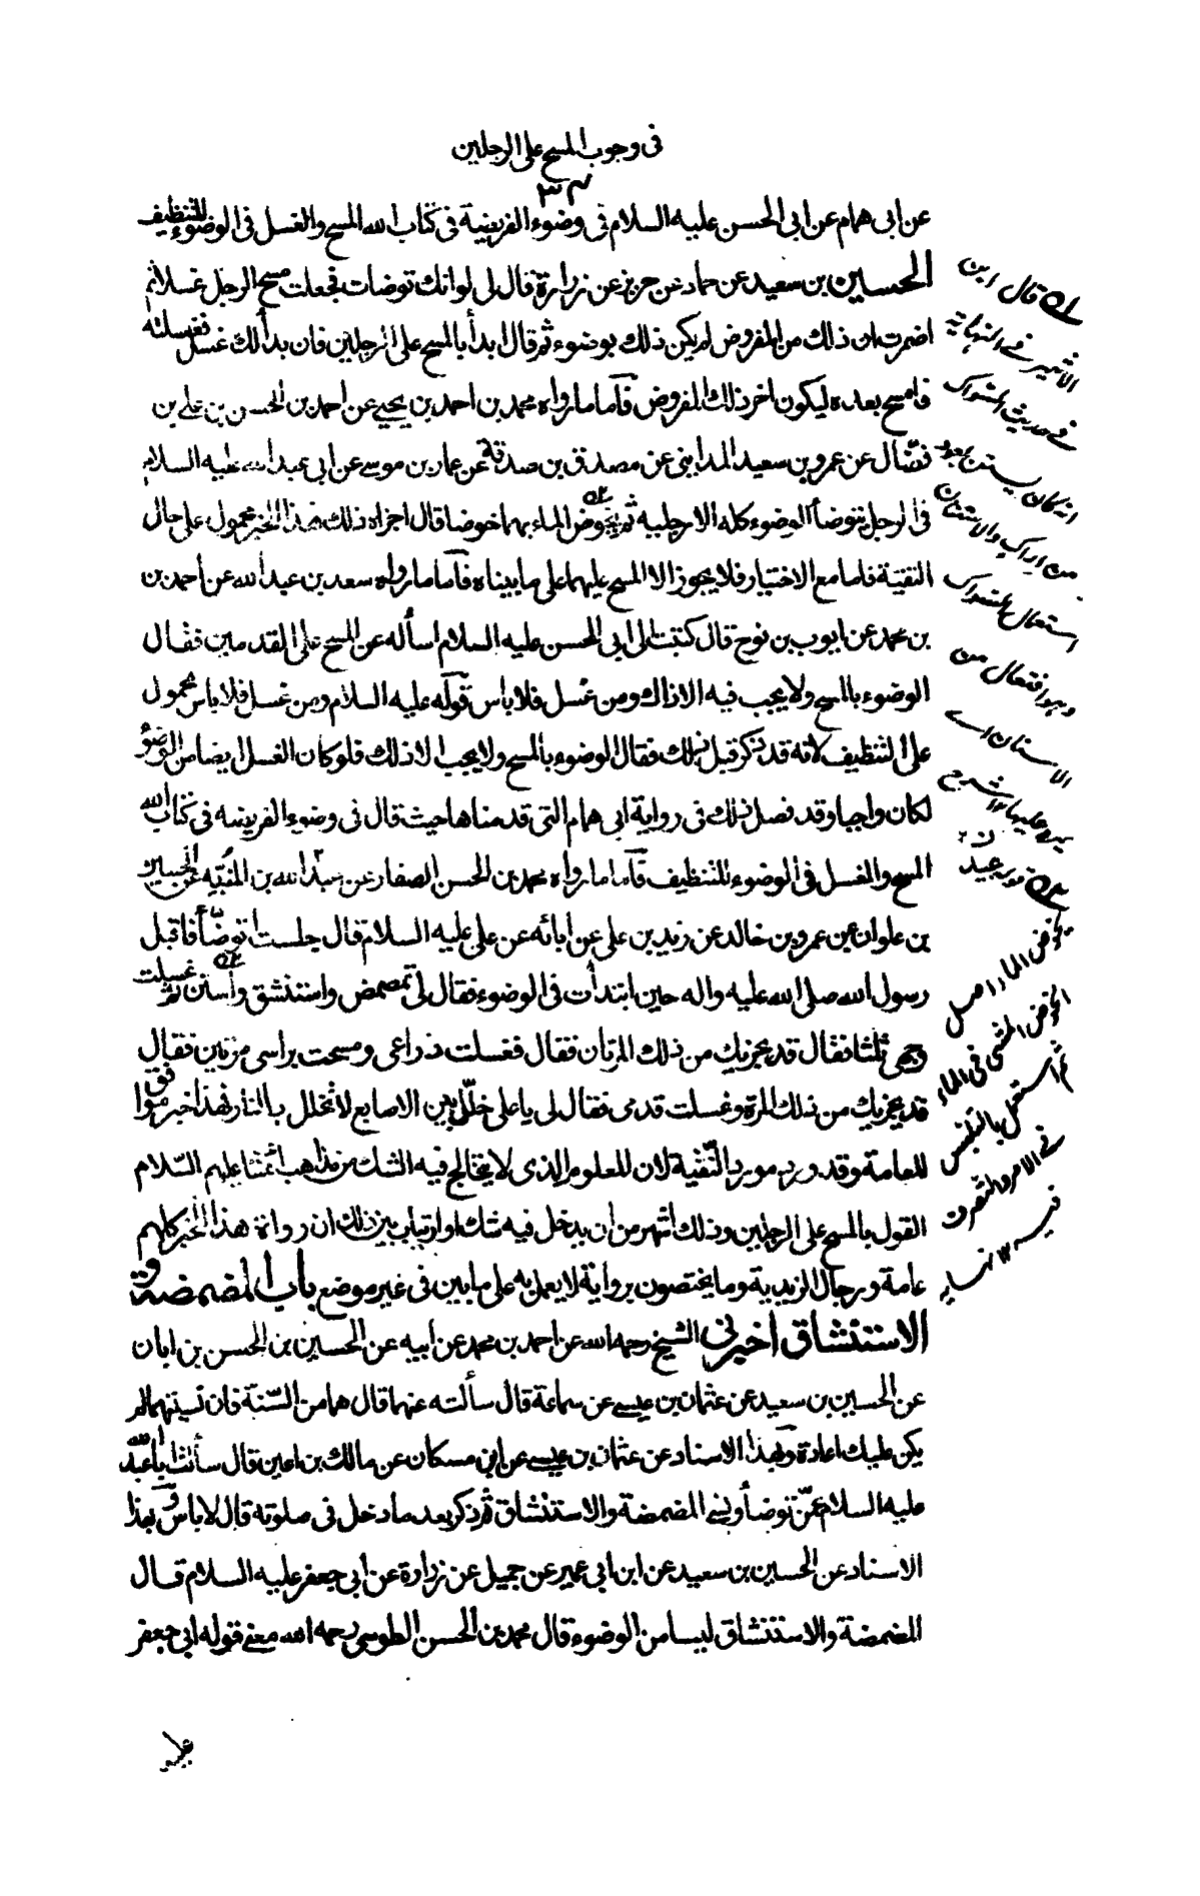 فى وجوب المسح على الرجلين
٣٤
عن ابى همام عن ابى الحسن عليه السلام فى وضوء الفريضة فى كتاب الله المسح والغسل فى الوضوء للتنظيف
الحسين بن سعيد عن حماد عن حريز عن زرارة قال لى لو انك توضات فجعلت مسح الرجل غسلا ثم
اضمرت ان ذلك من المفروض لم يكن ذلك بوضوء ثم قال ابدأ بالمسح على الرجلين فان بدألك غسل فغسلته
فامسح بعده ليكون اخر ذلك المفروض فآما ما رواه محمد بن احمد بن يحيى عن احمد بن الحسن بن على بن
فضّال عن عمرو بن سعيد المداينى عن مصدق بن صدقة عن عمار بن موسى عن ابى عبد الله عليه السلام
فى الرجل يتوضأ الوضوء كله الا رجليه ثم يخوض الماء بهما خوضا قال اجزاه ذلك فهذا الخبر محمول على حال
التقيّة فاما مع الاختيار فلا يجوز الا المسح عليهما على ما بيناه فآما ما رواه سعد بن عبد الله عن أحمد بن
بن محمد عن ايوب بن نوح قال كتبت الى ابى الحسن عليه السلام اسأله عن المسح على القدمين فقال
الوضوء بالمسح ولا يجب فيه الا ذاك ومن غسل فلا باس قوله عليه السلام ومن غسل فلا باس محمول
على التنظيف لانه قد ذكر قبل ذلك فقال الوضوء بالمسح ولا يجب الا ذلك فلو كان الغسل ايضا من الوضوء
لكان واجبا وقد فصل ذلك فى رواية ابى همام التى قدمناها حيث قال فى وضوء الفريضه فى كتاب الله
المسح والغسل فى الوضوء للتنظيف فآما ما رواه محمد بن الحسن الصفار عن عبد الله بن المُنبّه عن الحسين
بن علوان عن عمرو بن خالد عن زيد بن على عن ابائه عن على عليه السلام قال جلست اتوضّأ فاقبل
رسول الله صلى الله عليه واله حين ابتدأت فى الوضوء فقال لى تمضمض واستنشق وأستن ثم غسلت
وجهى ثلثا فقال قد يجزيك من ذلك المرتان فقال فغسلت ذراعى ومسحت براسى مرتين فقال
قد يجزيك من ذلك المرة وغسلت قدمى فقال لى يا على خلّل بين الاصابع لا تخلل بالنار فهذا خبر موافق
للعامة وقد ورد مورد التّقية لان المعلوم الذى لا يتخالج فيه الشك من مذاهب ائمتنا عليهم السّلام
القول بالمسح على الرجلين وذلك اشهر من ان يدخل فيه شك او ارتياب بين ذلك ان رواة هذا الخبر كلهم
عامة ورجال الزيدية وما يختصون برواية لا يعمل به على ما بين فى غير موضع باب المضمضة و
الاستنشاق اخبرنى الشيخ رحمه الله عن احمد بن محمد عن ابيه عن الحسين بن الحسن بن ابان
عن الحسين بن سعيد عن عثمان بن عيسى عن سماعة قال سألته عنهما قال هما من السّنة فان نسيتهما لم
يكن عليك اعادة وبهذا الاسناد عن عثمان بن عيسى عن ابن مسكان عن مالك بن اعين قال سألت ابا عبد الله
عليه السلام عمّن توضأ ونسى المضمضة والاستنشاق ثم ذكر بعد ما دخل فى صلوته قال لا باس وبهذا
الاسناد عن الحسين بن سعيد عن ابن ابى عمير عن جميل عن زرارة عن ابى جعفر عليه السلام قال
المضمضة والاستنشاق ليسا من الوضوء قال محمد بن الحسن الطوسى رحمه الله معنى قوله ابى جعفر
قال ابن
الاثير فى النهاية
فى حديث السواك
انه كان يستن بعود
من اراك والاستنان
استعمال السواك
وهو افتعال من
الاسنان اى
يمر عليها
قوله يخوض الماء اصل
الخوض المشى فى الماء
ثم استعمل بالتلبس
فى الامر والتصرف
فيه نهاية